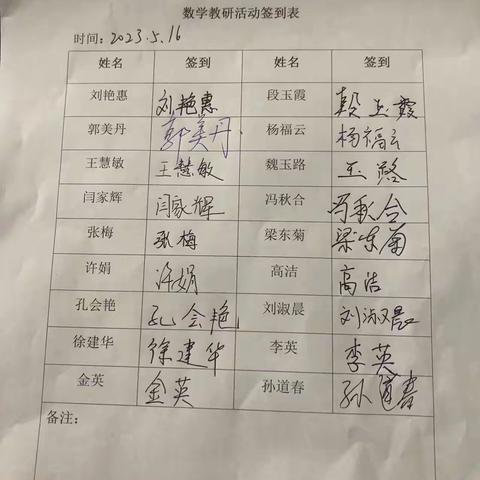 数学教研活动签到表
时间：2023.5.16
姓名 签到 姓名 签到
刘艳惠 刘艳惠 段玉霞 段玉霞
郭美丹 郭美丹 杨福云 杨福云
王慧敏 王慧敏 魏玉路 玉路
闫家辉 闫家辉 冯秋合 冯秋合
张梅 张梅 梁东菊 梁东菊
许娟 许娟 高洁 高洁
孔会艳 孔会艳 刘淑晨 刘淑晨
徐建华 徐建华 李英 李英
金英 金英 孙道春 孙道春
备注：